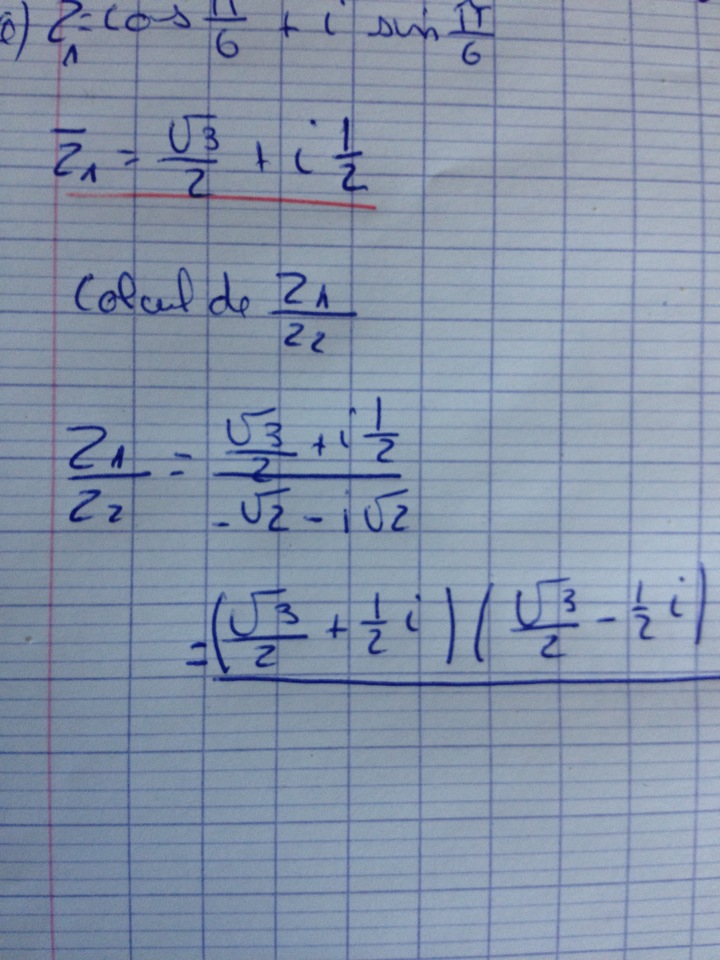 Z₁ = cos π/6 + i sin π/6
Z₁ = √3/2 + i 1/2
Calcul de Z₁/Z₂
Z₁/Z₂ = (√3/2 + i 1/2)/(-√2 - i√2)
= (√3/2 + 1/2 i) (√3/2 - 1/2 i)